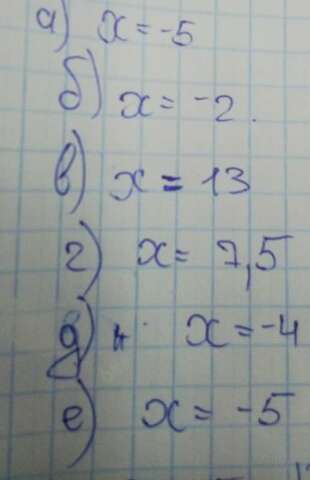 а) x = -5
б) x = -2.
в) x = 13
г) x = 7,5
д) x = -4
е) x = -5